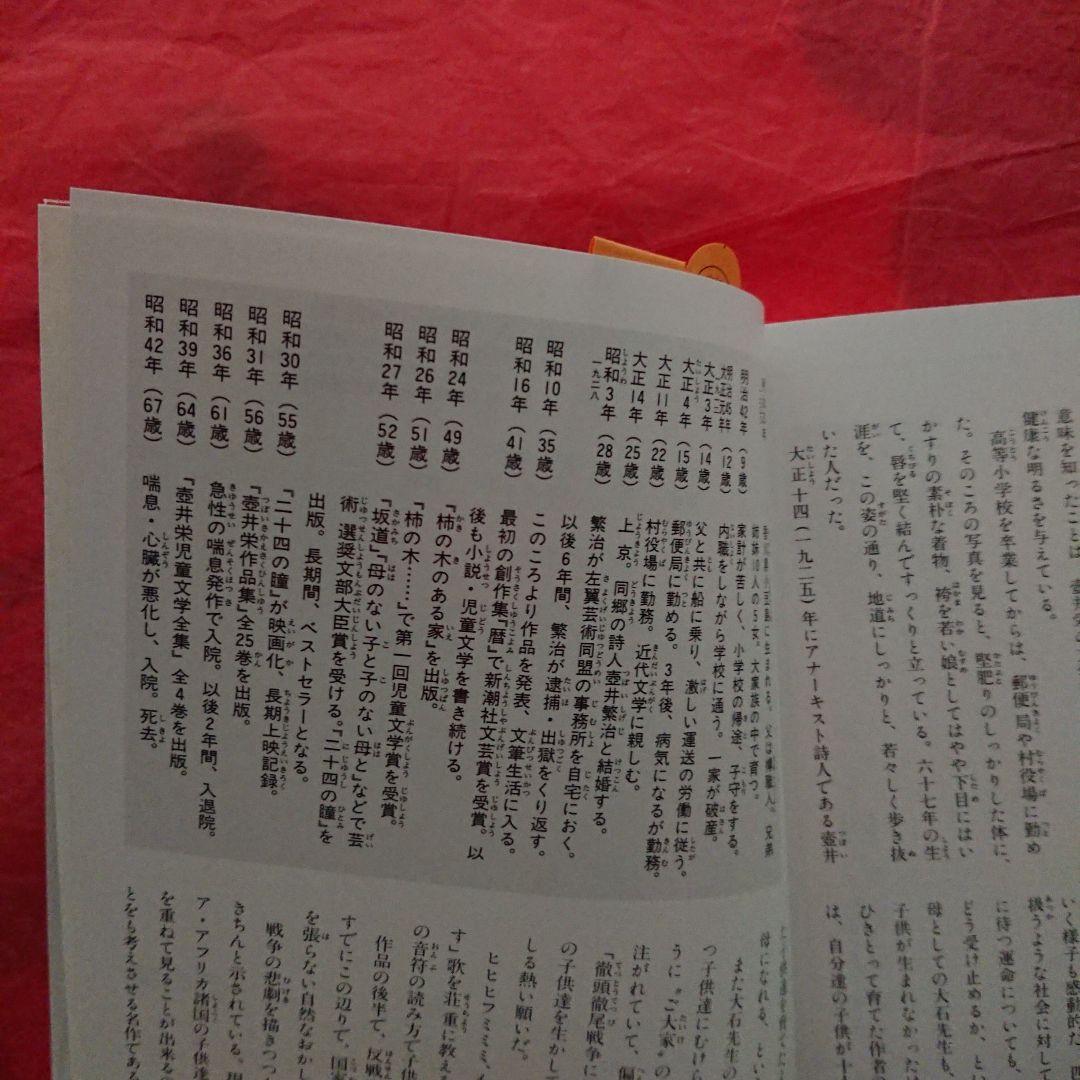 意味を知ったことは、
健康な明るさを与えている。
高等小学校を卒業してからは、郵便局や村役場に勤め
た。そのころの写真を見ると、堅肥りのしっかりした体に、
かすりの素朴な着物、袴を若い娘としてはやや下目にはい
て、唇を堅く結んですっくりと立っている。六十七年の生
涯を、この姿の通り、地道にしっかりと、若々しく歩き抜
いた人だった。
大正十四（一九二五）年にアナーキスト詩人である壺井
いく様子も感動的
うような社会に対して
に待つ運命についても、
どう受け止めるか、と
母としての大石先生も、
子供が生まれなかった
ひきとって育てた作者
は、自分達の子供が十
生まれる。大家族の中で育つ。
明治42年（9歳） 家計が苦しく、小学校の帰途、子守をする。
明治45年 大正元年（12歳） 内職をしながら学校に通う。一家が破産。
大正3年（14歳） 父と共に船に乗り、激しい運送の労働に従う。
大正4年（15歳） 郵便局に勤める。3年後、病気になるが勤務。
大正11年（22歳） 村役場に勤務。近代文学に親しむ。
大正14年（25歳） 上京。同郷の詩人壺井繁治と結婚する。
昭和3年（28歳） 繁治が左翼芸術同盟の事務所を自宅におく。
一九二八 以後6年間、繁治が逮捕・出獄をくり返す。
昭和10年（35歳） このころより作品を発表、文筆生活に入る。
昭和16年（41歳） 最初の創作集『暦』で新潮社文芸賞を受賞。以
後も小説・児童文学を書き続ける。
昭和24年（49歳） 『柿の木のある家』を出版。
昭和26年（51歳） 『柿の木……』で第一回児童文学賞を受賞。
昭和27年（52歳） 『坂道』『母のない子と子のない母と』などで芸
術選奨文部大臣賞を受ける。『二十四の瞳』を
出版。長期間、ベストセラーとなる。
昭和30年（55歳） 『二十四の瞳』が映画化、長期上映記録。
昭和31年（56歳） 『壺井栄作品集』全25巻を出版。
昭和36年（61歳） 急性の喘息発作で入院。以後2年間、入退院。
昭和39年（64歳） 『壺井栄児童文学全集』全4巻を出版。
昭和42年（67歳） 喘息・心臓が悪化し、入院。死去。
また大石先生の
つ子供達にむけら
うに〝ご大家〟の
注がれていて、偏
「徹頭徹尾戦争に
の子供達を生かし
しる熱い願いだ。
ヒヒヒフミミミ、
す」歌を荘重に教え
の音符の読み方で子供
作品の後半で、反戦
すでにこの辺りで、国家
を張らない自然なおかし
戦争の悲劇を描きつつ
きちんと示されている。現
ア・アフリカ諸国の子供達
を重ねて見ることが出来る
とをも考えさせる名作である